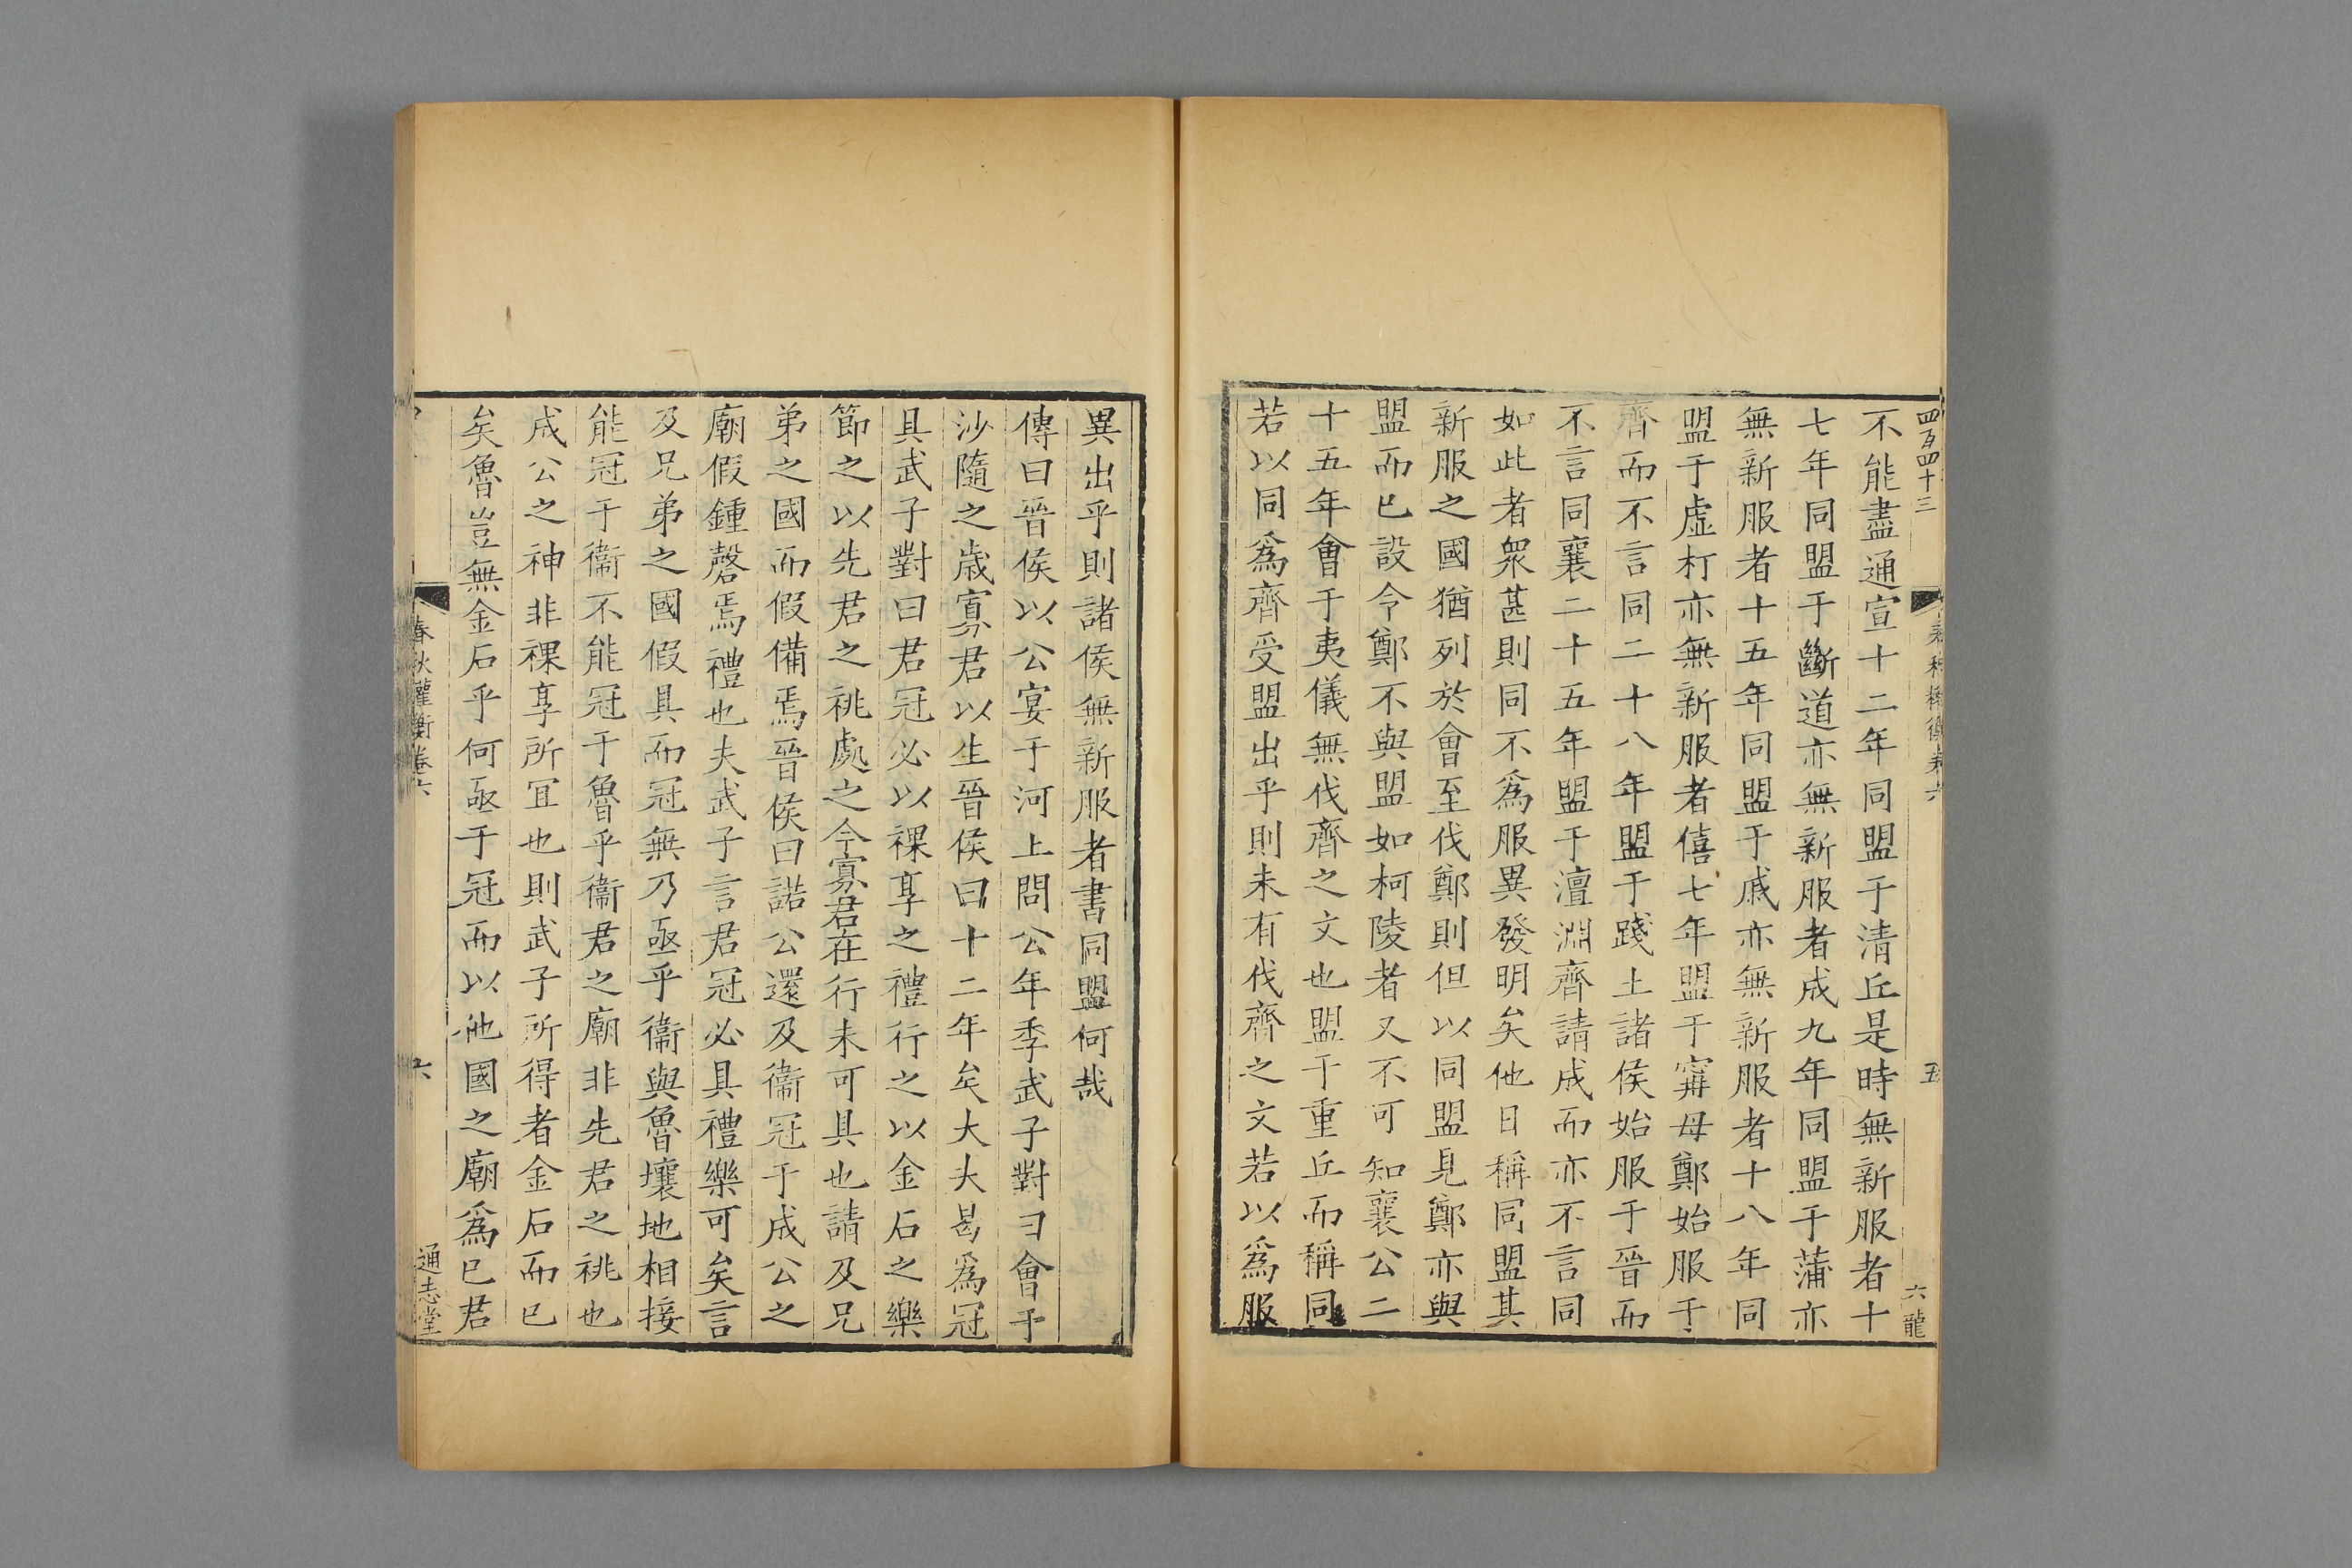 四百四十三
五
六龍
不能盡通宣十二年同盟于清丘是時無新服者十
七年同盟于斷道亦無新服者成九年同盟于蒲亦
無新服者十五年同盟于戚亦無新服者十八年同
盟于虛朾亦無新服者僖七年盟于甯母鄭始服于
齊而不言同二十八年盟于踐土諸侯始服于晉而
不言同襄二十五年盟于澶淵齊請成而亦不言同
如此者衆甚則同不爲服異發明矣他日稱同盟其
新服之國猶列於會至伐鄭則但以同盟見鄭亦與
盟而已設令鄭不與盟如柯陵者又不可知襄公二
十五年會于夷儀無伐齊之文也盟于重丘而稱同
若以同爲齊受盟出乎則未有伐齊之文若以爲服
異出乎則諸侯無新服者書同盟何哉
傳曰晉侯以公宴于河上問公年季武子對曰會于
沙隨之歲寡君以生晉侯曰十二年矣大夫曷爲冠
具武子對曰君冠必以祼享之禮行之以金石之樂
節之以先君之祧處之今寡君在行未可具也請及兄
弟之國而假備焉晉侯曰諾公還及衞冠于成公之
廟假鍾磬焉禮也夫武子言君冠必具禮樂可矣言
及兄弟之國假具而冠無乃亟乎衞與魯壤地相接
能冠于衞不能冠于魯乎衞君之廟非先君之祧也
成公之神非祼享所冝也則武子所得者金石而已
矣魯豈無金石乎何亟于冠而以他國之廟爲已君
春秋權衡卷六
六
通志堂